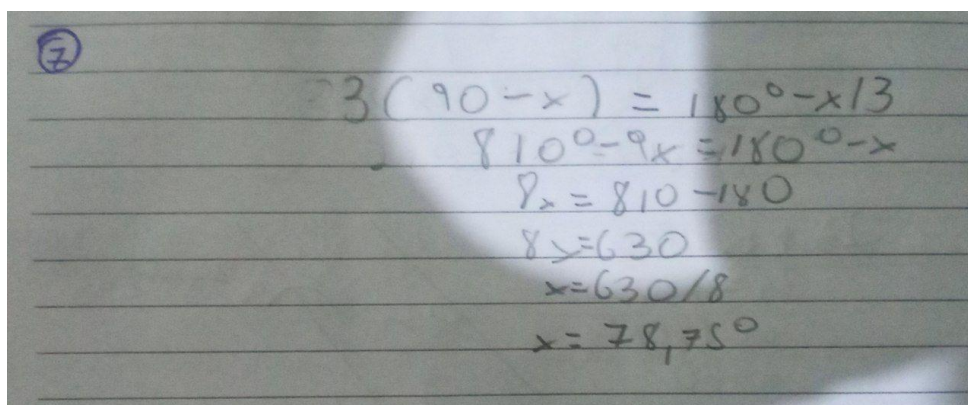 7
3(90-x) = 180°-x/3
810°-9x=180°-x
8x=810-180
8x=630
x=630/8
x=78,75°